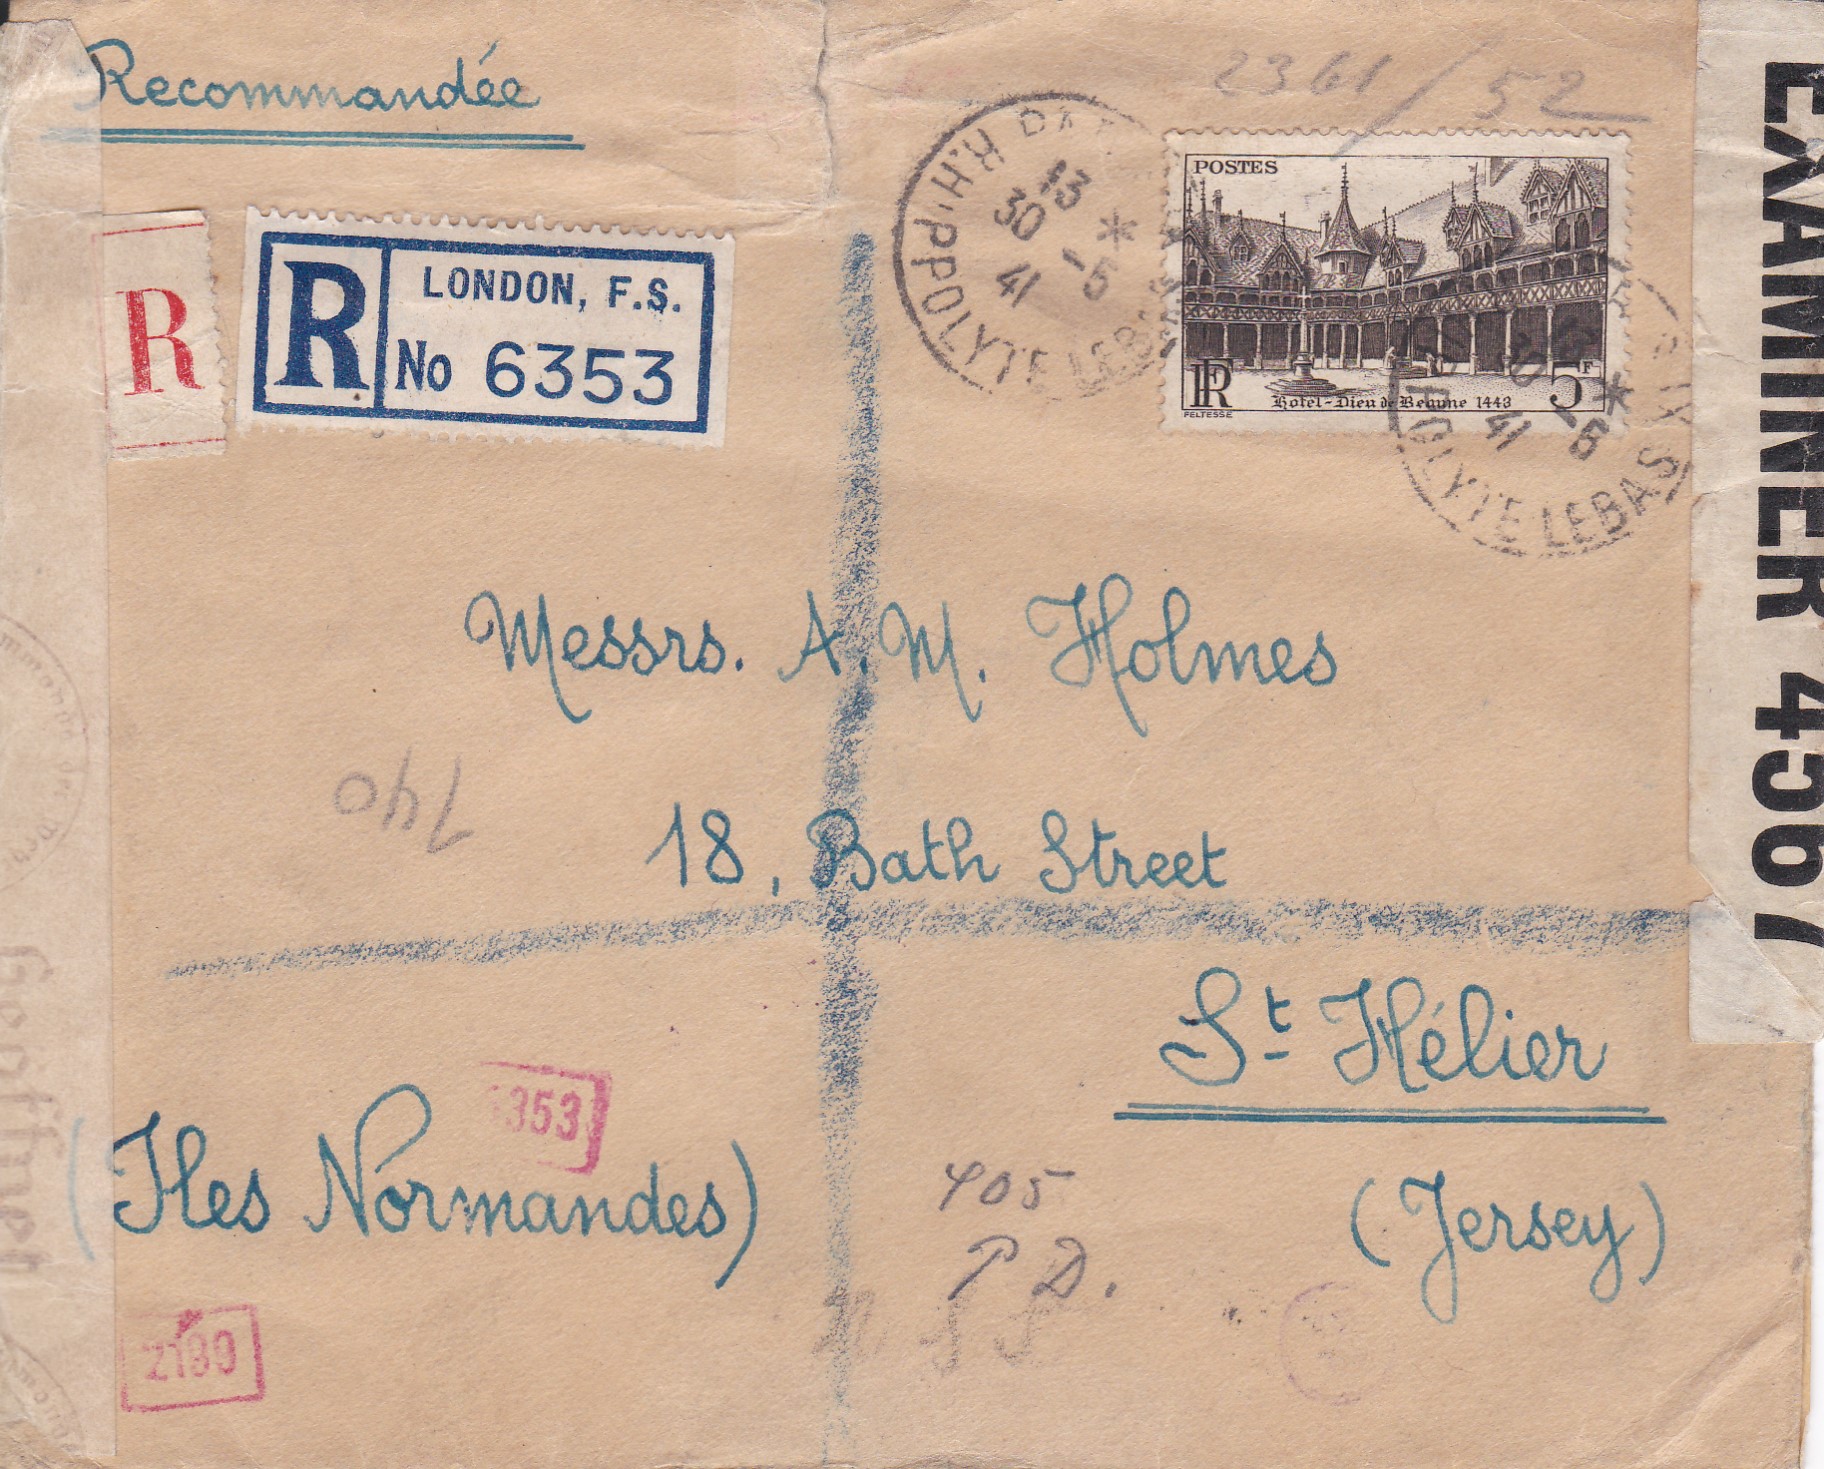 Recommandée
2361/52
R
R
LONDON, F.S.
No 6353
13
30 -5
41
R.HIPPOLYTE LEBAS
POSTES
RF
Hotel-Dieu de Beaune 1443
5F
PELTESSE
30 -5
41
OLYTE LEBAS
EXAMINER 4567
Messrs. A. M. Holmes
140
18, Bath Street
St Hélier
353
(Iles Normandes)
(Jersey)
405
P D.
Geöffnet